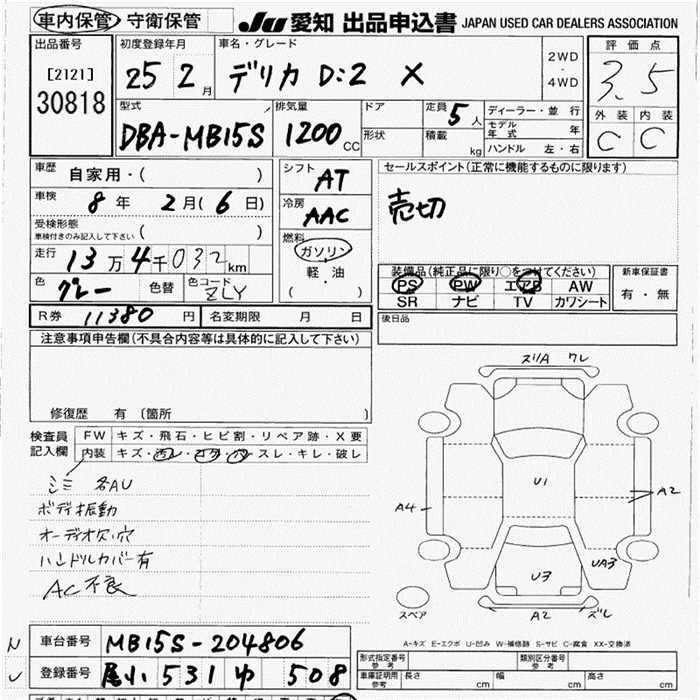 車内保管・守衛保管
JU 愛知 出品申込書 JAPAN USED CAR DEALERS ASSOCIATION
出品番号
[2121]
30818
初度登録年月
25 2月
車名・グレード
デリカ D:2 X
2WD
・
4WD
評価点
3.5
外装 内装
C C
型式
DBA-MB15S
排気量
1200cc
ドア
形状
定員 5人
積載 kg
ディーラー・並行
モデル年式 年
ハンドル 左・右
車歴
自家用・( )
車検 8年 2月(6日)
受検形態
車検付きのみ記入して下さい ( )
走行 13万4千032km
色 グレー 色替 色コード ZLY
シフト
AT
冷房
AAC
燃料
ガソリン
軽・油
( ・ )
セールスポイント(正常に機能するものに限ります)
売切
装備品(純正品に限り○をつけてください)
PS PW エアB AW
SR ナビ TV カワシート
新車保証書
有・無
R券 11380円 名変期限 月 日
後日品
注意事項申告欄(不具合内容等は具体的に記入して下さい)
修復歴 有(箇所 )
検査員
記入欄
FW キズ・飛石・ヒビ割・リペア跡・X要
内装 キズ・汚レ・コゲ・穴・スレ・キレ・破レ
シミ 各AU
ボディ振動
オーディオ欠・穴
ハンドルカバー有
AC不良
スリA ワレ
U1
A4
A2
UA3
U3
A2 ズレ
スペア
A-キズ E-エクボ U-凹み W-補修跡 S-サビ C-腐食 XX-交換済
車台番号 MB15S-204806
登録番号 尾小 531 ゆ 508
形式指定番号
参考
類別区分番号
参考
車庫証明用
参考
長さ cm 幅 cm 高さ cm